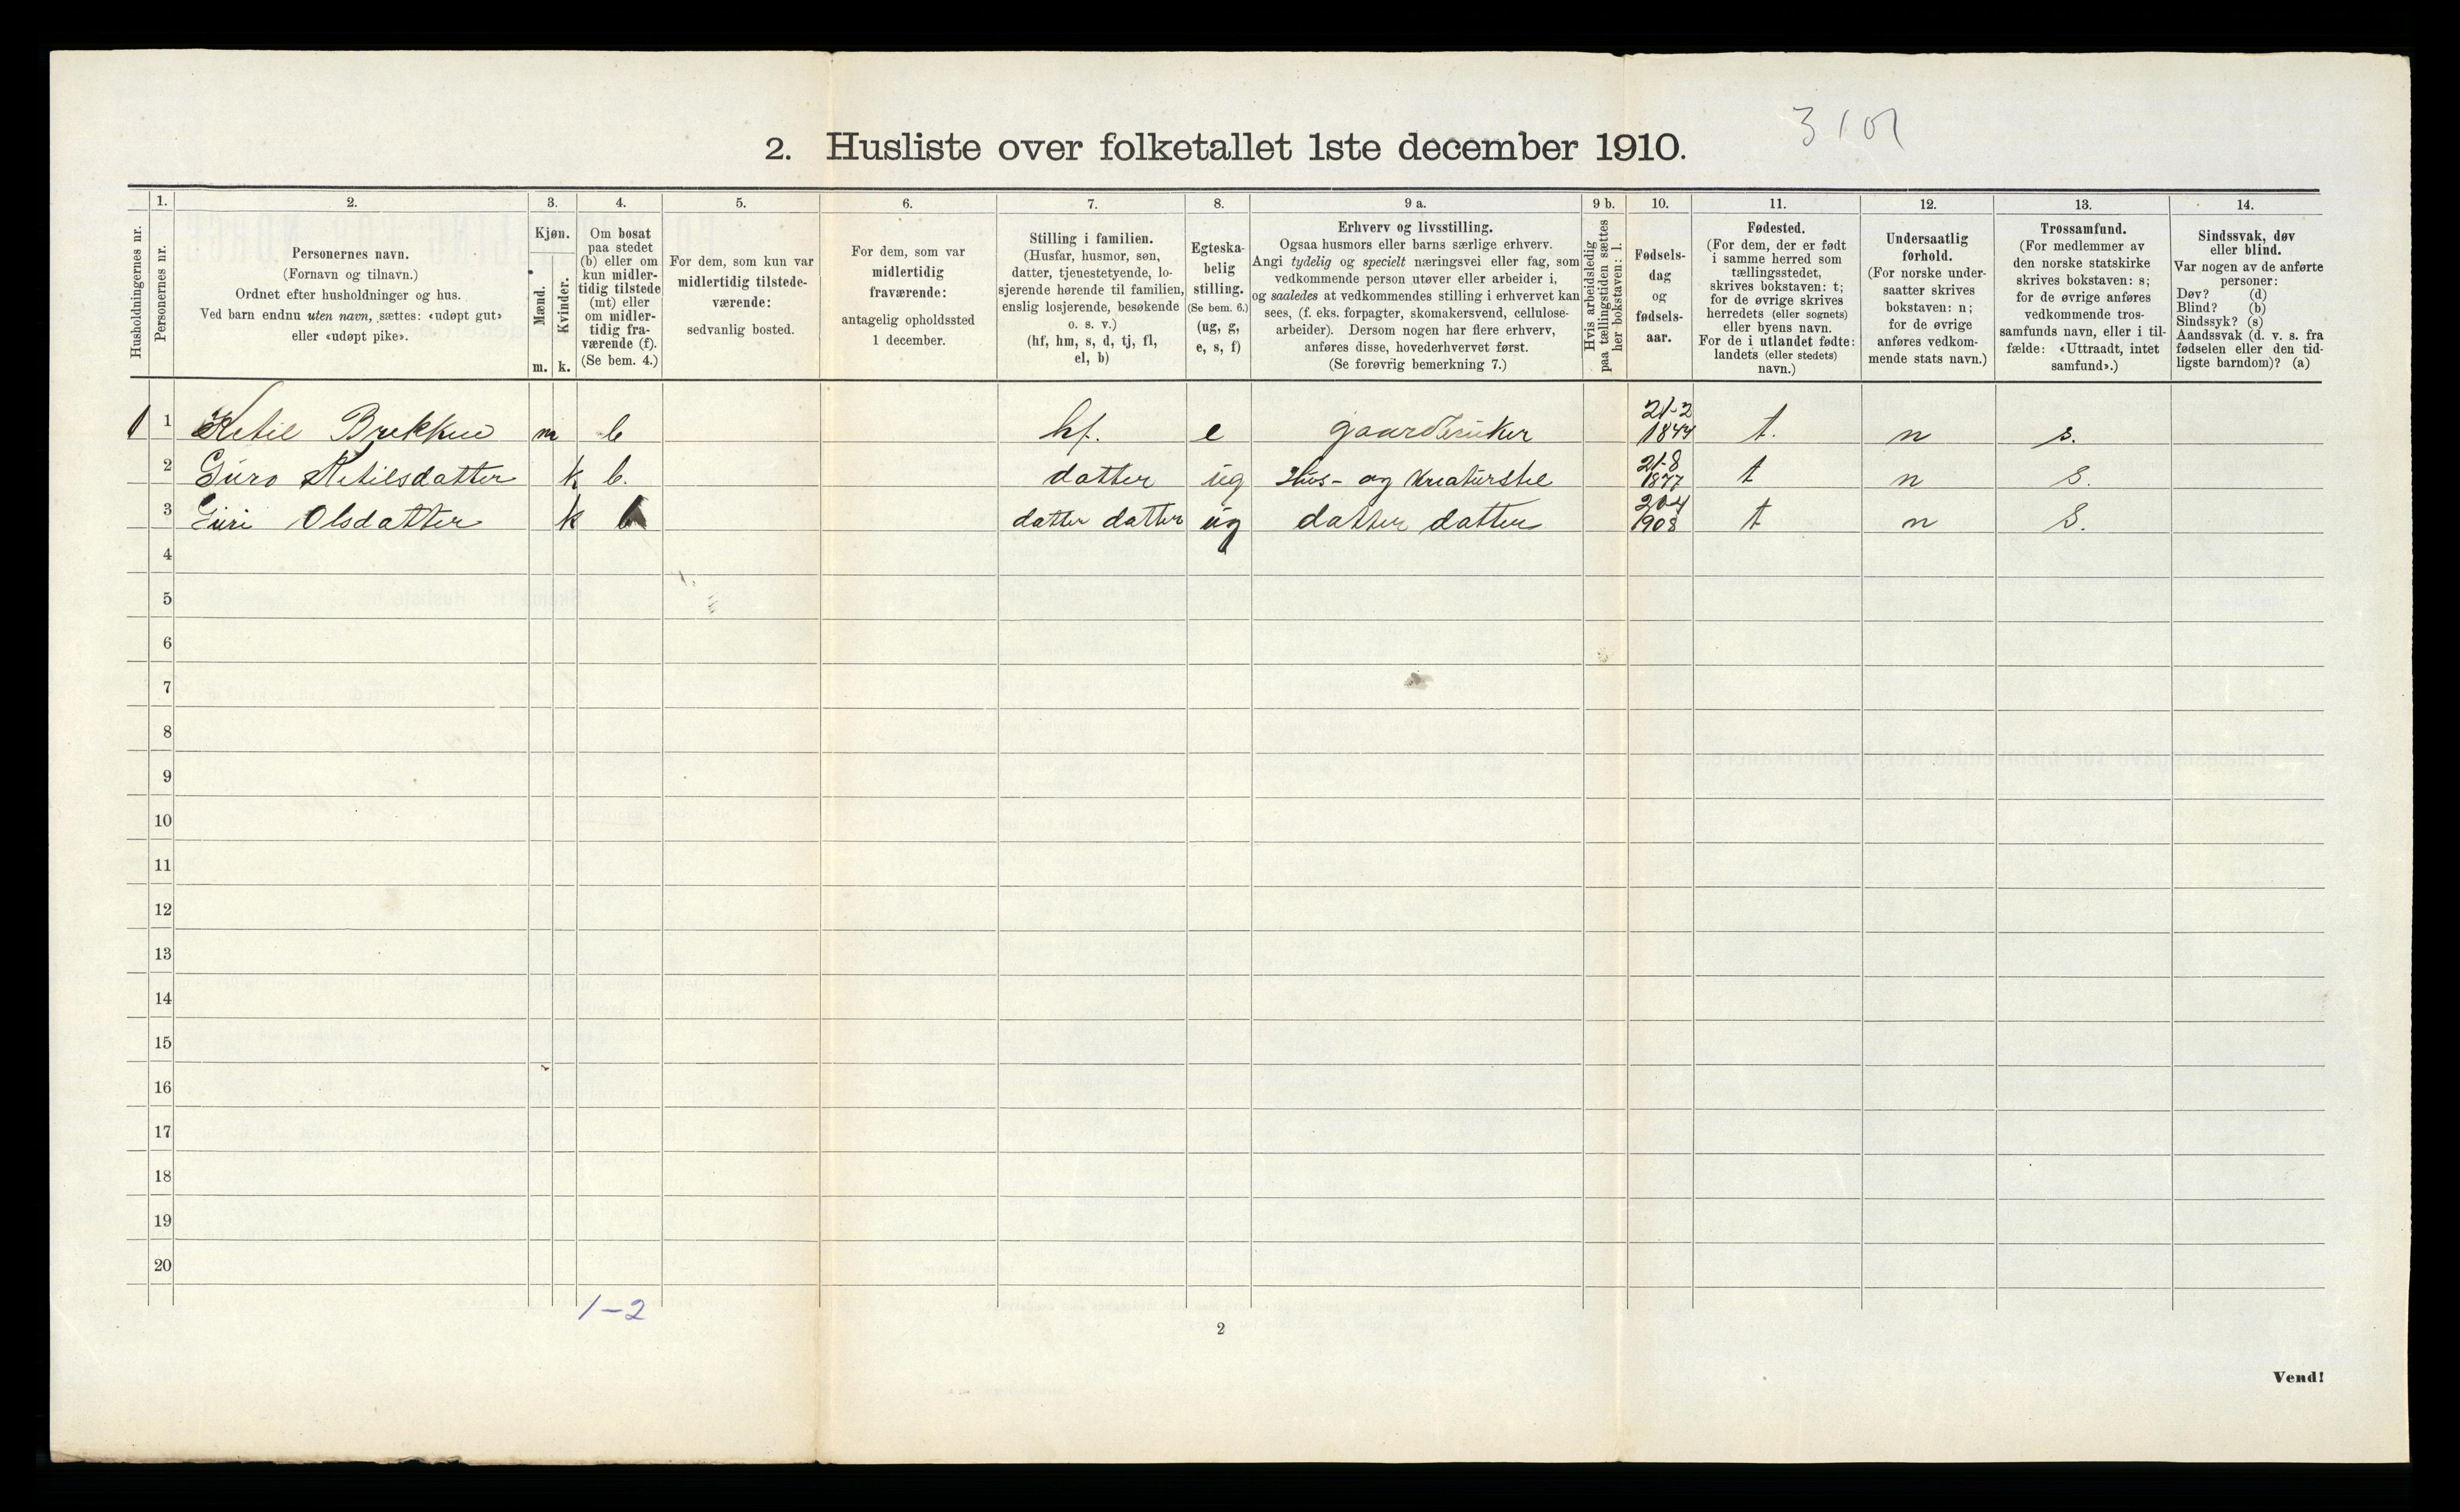 3 1 01
2. Husliste over folketallet 1ste december 1910.
Husholdningernes nr.
1.
Personernes nr.
2.
Personernes navn.
(Fornavn og tilnavn.)
Ordnet efter husholdninger og hus.
Ved barn endnu uten navn, sættes: «udøpt gut»
eller «udøpt pike».
3.
Kjøn.
Mænd.
Kvinder.
m. k.
4.
Om bosat
paa stedet
(b) eller om
kun midler-
tidig tilstede
(mt) eller
om midler-
tidig fra-
værende (f).
(Se bem. 4.)
5.
For dem, som kun var
midlertidig tilstede-
værende:
sedvanlig bosted.
6.
For dem, som var
midlertidig
fraværende:
antagelig opholdssted
1 december.
7.
Stilling i familien.
(Husfar, husmor, søn,
datter, tjenestetyende, lo-
sjerende hørende til familien,
enslig losjerende, besøkende
o. s. v.)
(hf, hm, s, d, tj, fl,
el, b)
8.
Egteska-
belig
stilling.
(Se bem. 6.)
(ug, g,
e, s, f)
9 a.
Erhverv og livsstilling.
Ogsaa husmors eller barns særlige erhverv.
Angi tydelig og specielt næringsvei eller fag, som
vedkommende person utøver eller arbeider i,
og saaledes at vedkommendes stilling i erhvervet kan
sees, (f. eks. forpagter, skomakersvend, cellulose-
arbeider). Dersom nogen har flere erhverv,
anføres disse, hovederhvervet først.
(Se forøvrig bemerkning 7.)
9 b.
Hvis arbeidsledig
paa tællingstiden sættes
her bokstaven: l.
10.
Fødsels-
dag
og
fødsels-
aar.
11.
Fødested.
(For dem, der er født
i samme herred som
tællingsstedet,
skrives bokstaven: t;
for de øvrige skrives
herredets (eller sognets)
eller byens navn.
For de i utlandet fødte:
landets (eller stedets)
navn.)
12.
Undersaatlig
forhold.
(For norske under-
saatter skrives
bokstaven: n;
for de øvrige
anføres vedkom-
mende stats navn.)
13.
Trossamfund.
(For medlemmer av
den norske statskirke
skrives bokstaven: s;
for de øvrige anføres
vedkommende tros-
samfunds navn, eller i til-
fælde: «Uttraadt, intet
samfund».)
14.
Sindssvak, døv
eller blind.
Var nogen av de anførte
personer:
Døv? (d)
Blind? (b)
Sindssyk? (s)
Aandssvak (d. v. s. fra
fødselen eller den tid-
ligste barndom)? (a)
1 1 Ketil Brekken m b hf. e gaardbruker 21-2 1844 t. n s.
2 Guro Ketilsdatter k b. datter ug Hus- og kreaturstel 21-8 1877 t n S.
3 Guri Olsdatter k b datter datter ug datter datter 20-4 1908 t n S.
4
5
6
7
8
9
10
11
12
13
14
15
16
17
18
19
20
1-2
2
Vend!